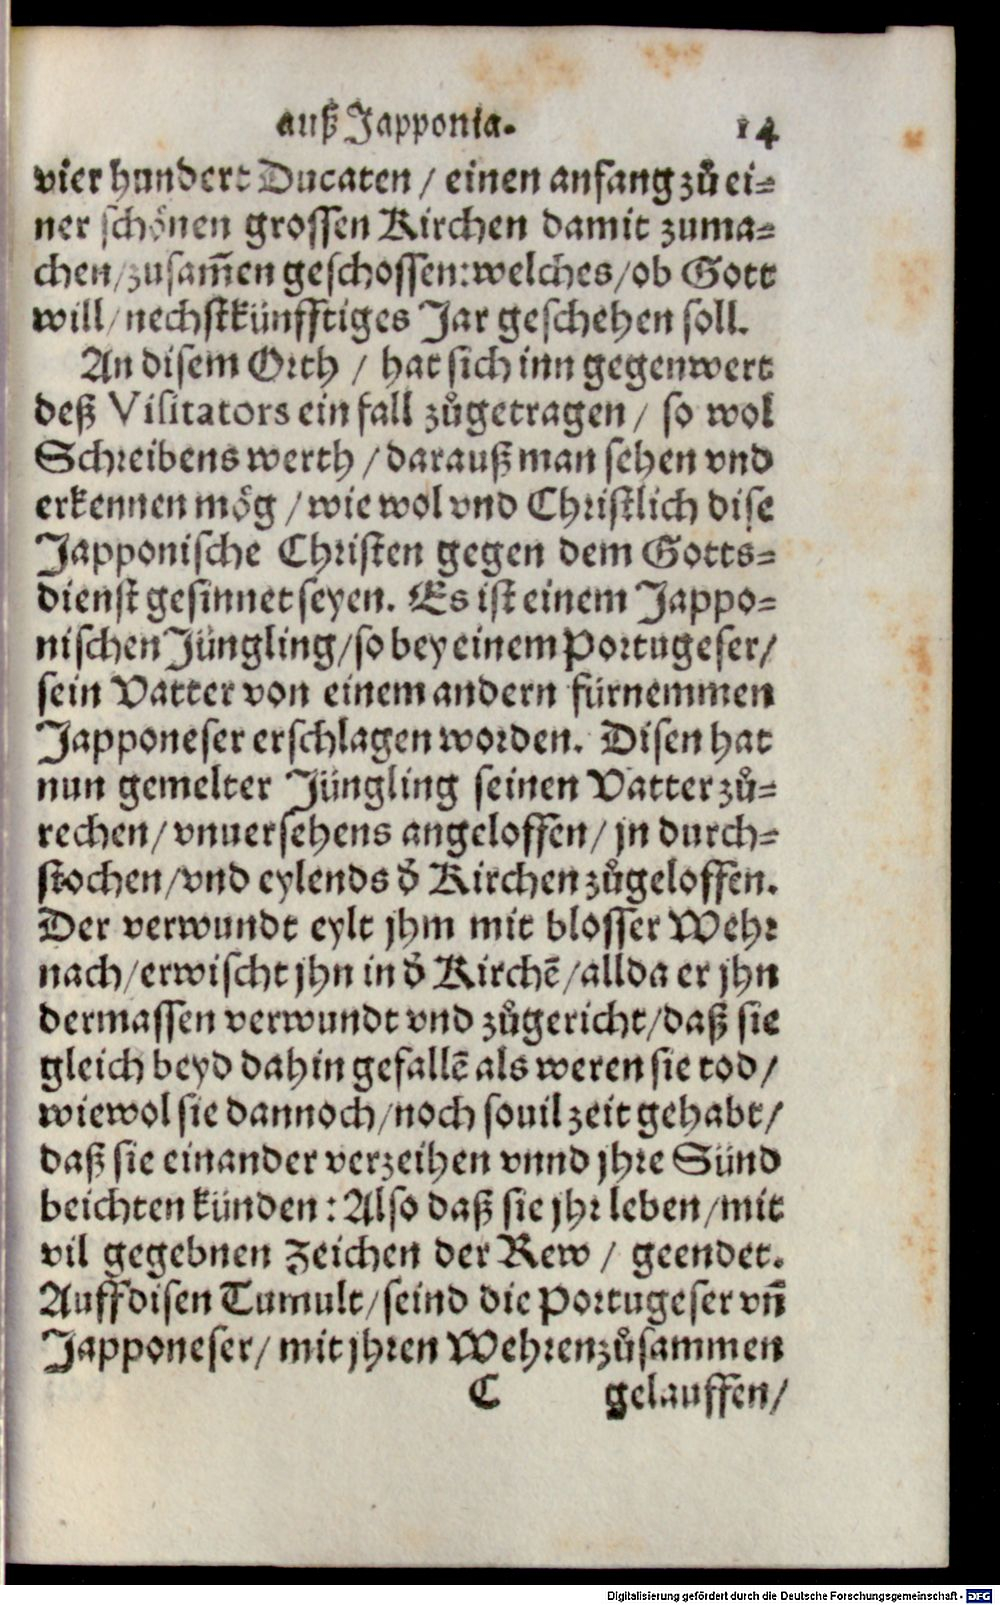 auß Japponia. 14
vier hundert Ducaten / einen anfang zů ei=
ner schönen grossen Kirchen damit zuma=
chen/zusam̄en geschossen: welches/ob Gott
will/nechstkünfftiges Jar geschehen soll.
An disem Orth / hat sich inn gegenwert
deß Visitators ein fall zůgetragen / so wol
Schreibens werth / darauß man sehen vnd
erkennen mög / wie wol vnd Christlich dise
Japponische Christen gegen dem Gotts=
dienst gesinnet seyen. Es ist einem Jappo=
nischen Jüngling/so bey einem Portugeser/
sein Vatter von einem andern fürnemmen
Japponeser erschlagen worden. Disen hat
nun gemelter Jüngling seinen Vatter zů=
rechen/vnuersehens angeloffen/jn durch=
stochen/vnd eylends d̕ Kirchen zůgeloffen.
Der verwundt eylt jhm mit blosser Wehr
nach/erwischt jhn in d̕ Kirchē/allda er jhn
dermassen verwundt vnd zůgericht/daß sie
gleich beyd dahin gefallē als weren sie tod/
wiewol sie dannoch/noch souil zeit gehabt/
daß sie einander verzeihen vnnd jhre Sünd
beichten künden: Also daß sie jhr leben/mit
vil gegebnen Zeichen der Rew / geendet.
Auff disen Tumult/seind die Portugeser vn̄
Japponeser/mit jhren Wehren zůsammen
C gelauffen/
Digitalisierung gefördert durch die Deutsche Forschungsgemeinschaft - DFG